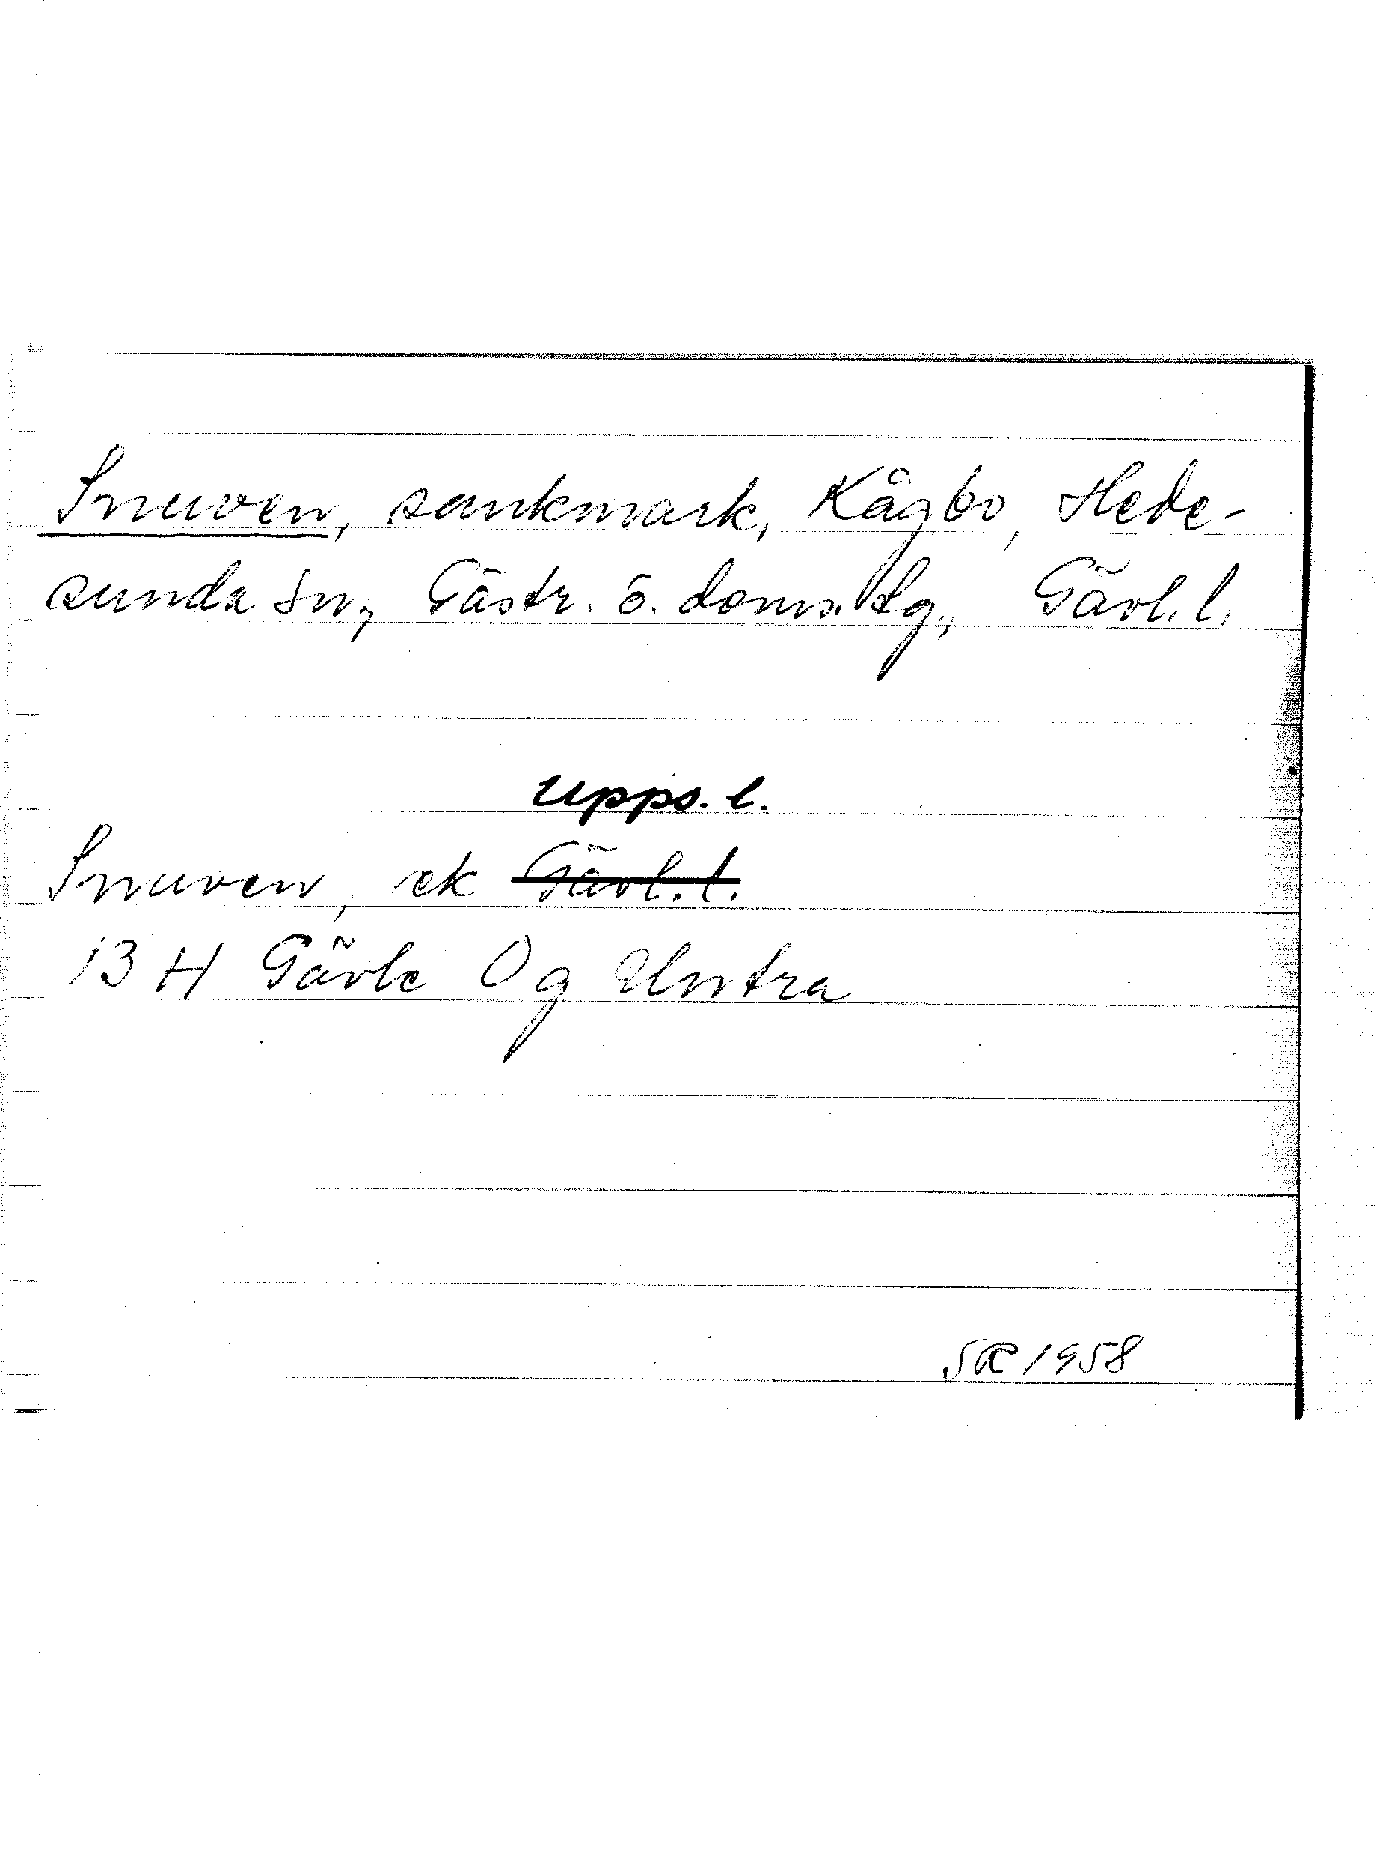 Snuven, sankmark, Kågbo, Hede-
sunda sn, Gästr. ö. doms. tg., Gävl. l.
Upps. l.
Snuven, ek Gävl. l.
13 H Gävle 0 g Untra
SR 1958